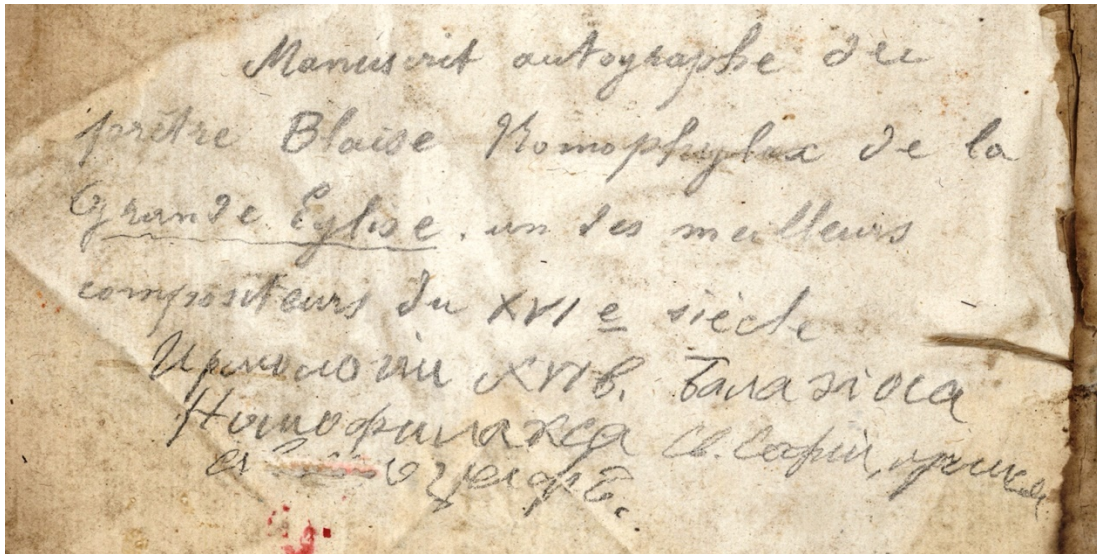 Manuscrit autographe du
prêtre Blaise Nomophylax de la
Grande Eglise. un des meilleurs
compositeurs du XVIe siècle
Ирмологій XVI в. Балазіоса
Номофилакса Св. Софіи,